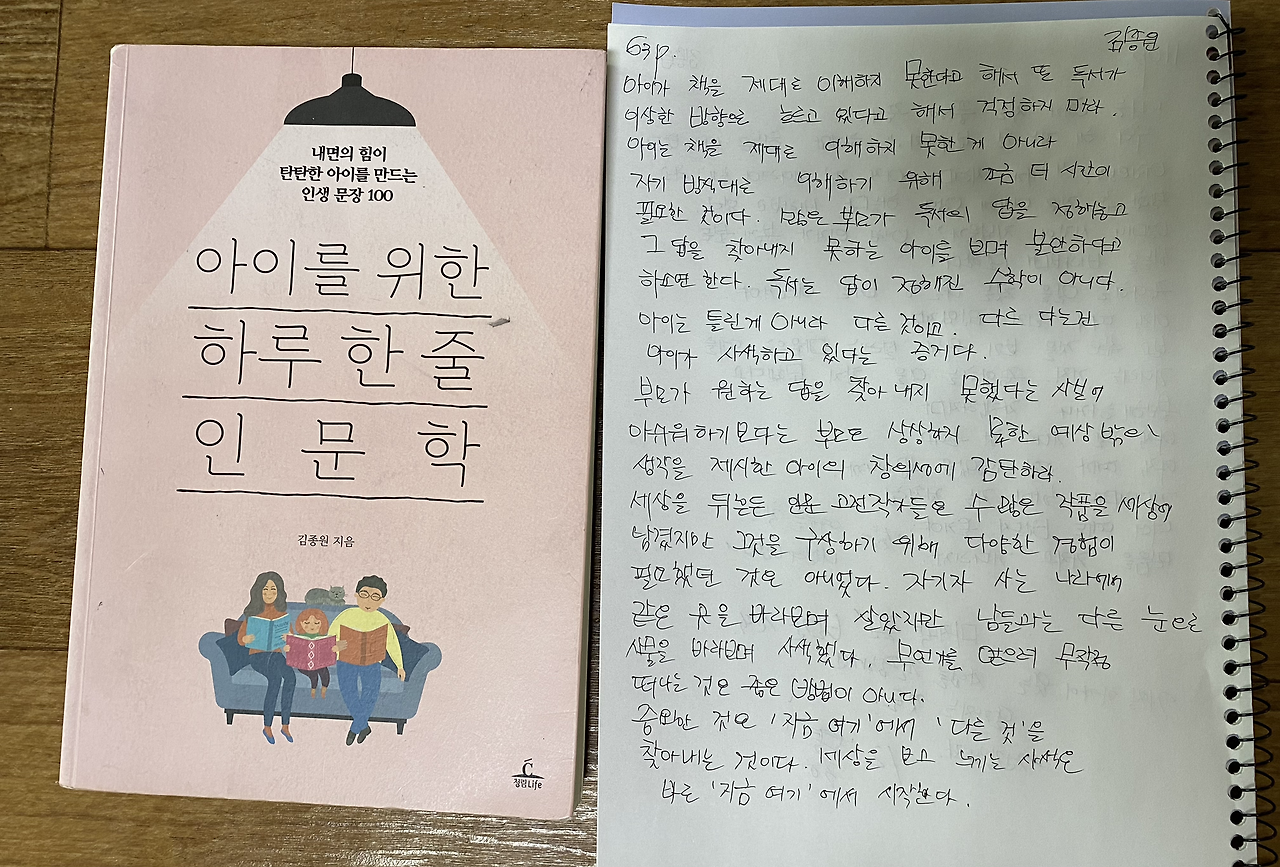 내면의 힘이
탄탄한 아이를 만드는
인생 문장 100
아이를 위한
하루 한 줄
인 문 학
김종원 지음
청림Life
63p. 김종원
아이가 책을 제대로 이해하지 못한다고 해서 또 독서가
이상한 방향으로 흐르고 있다고 해서 걱정하지 마라.
아이는 책을 제대로 이해하지 못한 게 아니라
자기 방식대로 이해하기 위해 조금 더 시간이
필요한 것이다. 많은 부모가 독서의 답을 정해놓고
그 답을 찾아내지 못하는 아이를 보며 불안하다고
하소연 한다. 독서는 답이 정해진 수학이 아니다.
아이는 틀린게 아니라 다른 것이고. 다르다는건
아이가 사색하고 있다는 증거다.
부모가 원하는 답을 찾아 내지 못했다는 사실에
아쉬워하기 보다는 부모도 상상하지 못한 예상 밖의
생각을 제시한 아이의 창의성에 감탄하라.
세상을 뒤흔든 인문 고전작가들은 수 많은 작품을 세상에
남겼지만 그것을 구상하기 위해 다양한 경험이
필요했던 것은 아니었다. 자기가 사는 나라에서
같은 곳을 바라보며 살았지만 남들과는 다른 눈으로
사물을 바라보며 사색했다. 무언가를 얻으려 무작정
떠나는 것은 좋은 방법이 아니다.
중요한 것은 '지금 여기'에서 '다른 것'을
찾아내는 것이다. 세상을 보고 느끼는 사색은
바로 '지금 여기'에서 시작한다.